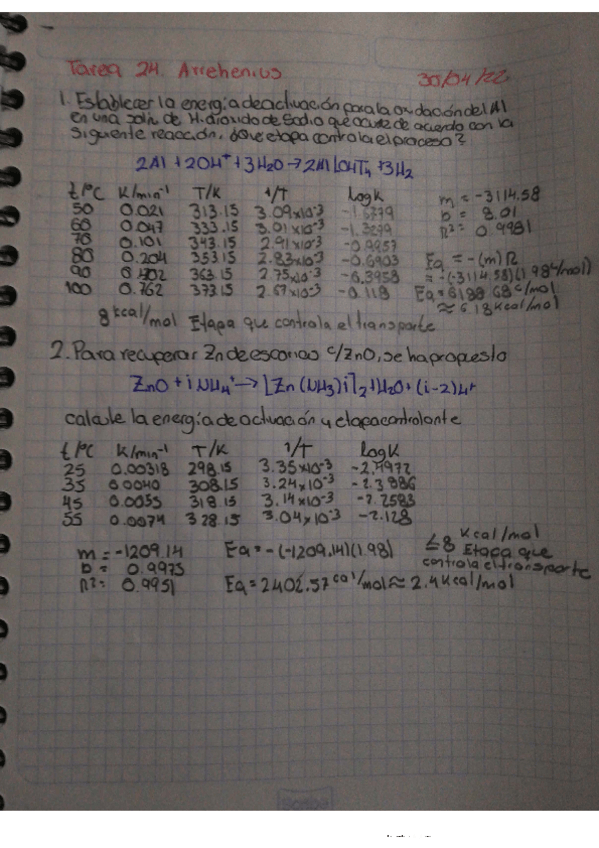 Tarea 24. Arrehenius 30/04/22
1. Establecer la energía de activación para la oxidación del Al
en una soln de Hidróxido de Sodio que ocurre de acuerdo con la
siguiente reacción, ¿Que etapa controla el proceso?
2Al + 2OH⁺ + 3H₂O → 2Al(OH)₄ + 3H₂
t/°C K/min⁻¹ T/K 1/T logK
50 0.021 313.15 3.09x10⁻³ -1.6779
60 0.047 333.15 3.01x10⁻³ -1.3279
70 0.101 343.15 2.91x10⁻³ -0.9957
80 0.204 353.15 2.83x10⁻³ -0.6903
90 0.402 363.15 2.75x10⁻³ -0.3958
100 0.762 373.15 2.67x10⁻³ -0.118
m = -3114.58
b = 8.01
R² = 0.9981
Ea = -(m)R
= -(-3114.58)(1.98 c/mol)
Ea = 6188.68 c/mol
≈ 6.18 Kcal/mol
8 kcal/mol Etapa que controla el transporte
2. Para recuperar Zn de escorias c/ZnO, se ha propuesto
ZnO + iNH₄⁺ → [Zn(NH₃)i]₂ + H₂O + (i-2)H⁺
calcule la energía de activación y etapa controlante
t/°C K/min⁻¹ T/K 1/T logK
25 0.00318 298.15 3.35x10⁻³ -2.4972
35 0.0040 308.15 3.24x10⁻³ -2.3986
45 0.0055 318.15 3.14x10⁻³ -2.2583
55 0.0074 328.15 3.04x10⁻³ -2.128
m = -1209.14
b = 0.9975
R² = 0.9951
Ea = -(-1209.14)(1.98)
Ea = 2402.57 cal/mol ≈ 2.4 Kcal/mol
≤8 Kcal/mol
Etapa que
controla el transporte
Scribe